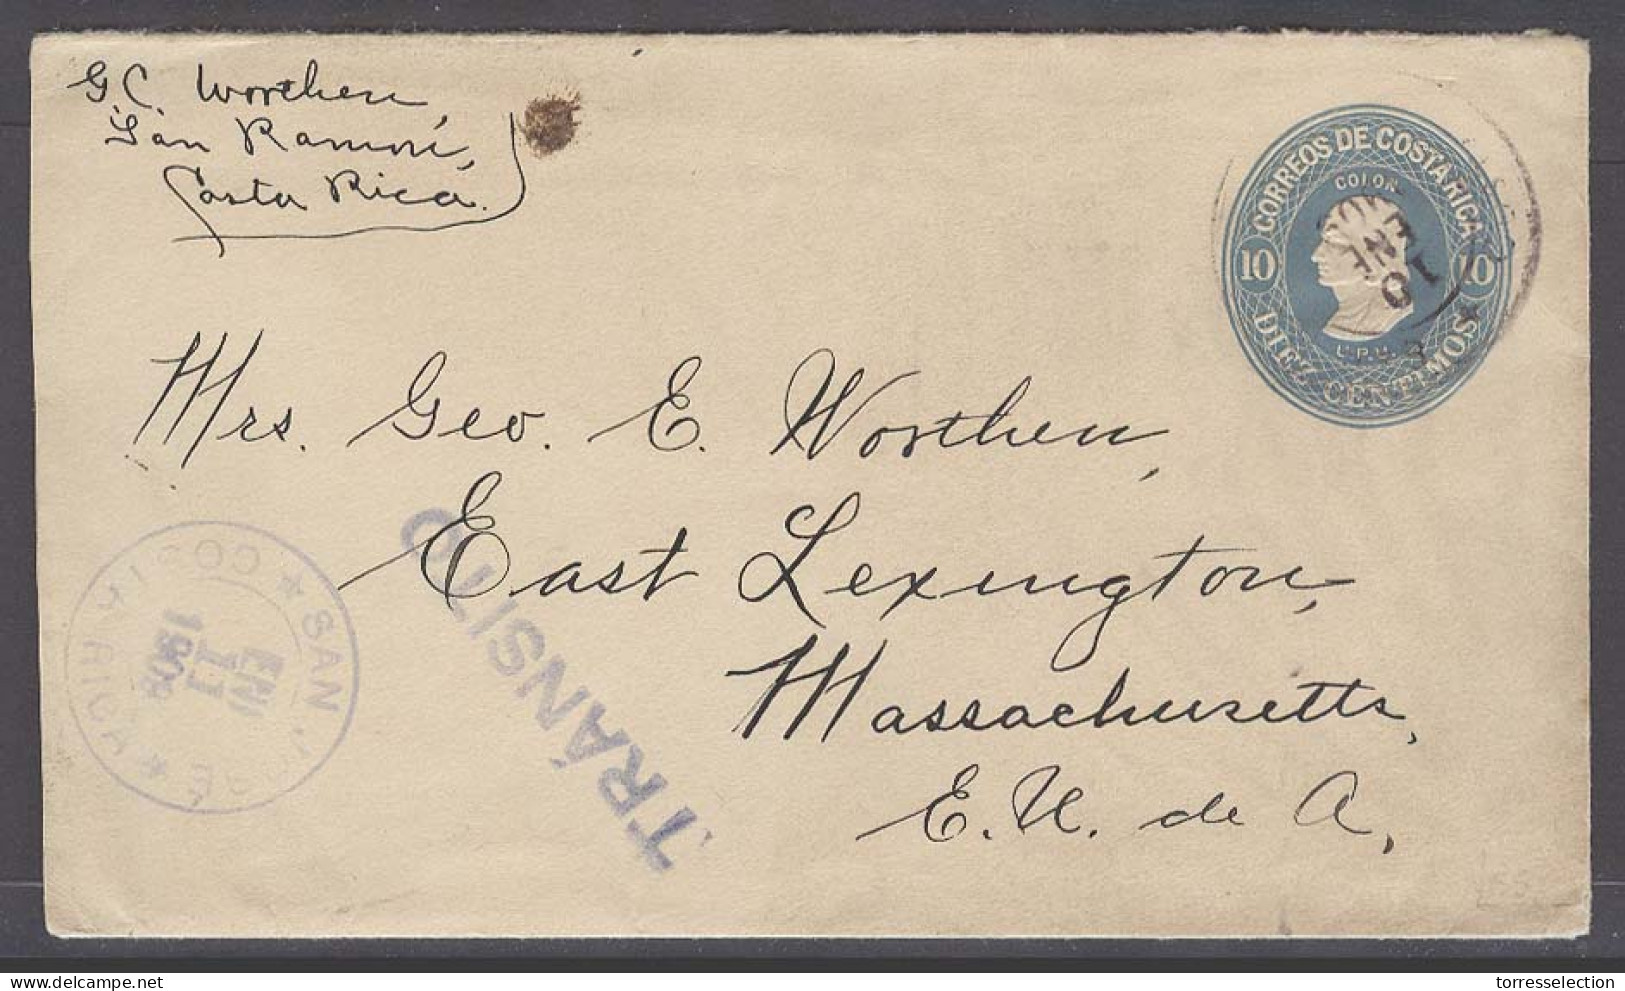 G.C. Worthen
San Ramón,
Costa Rica.
CORREOS DE COSTA RICA
COLON
10 10
U.P.U.
DIEZ CENTIMOS
EN
10
Mrs. Geo. E. Worthen,
East Lexington,
Massachusetts,
E. U. de A.
TRÁNSITO
SAN JOSE
COSTA RICA
EN
11
torresselection